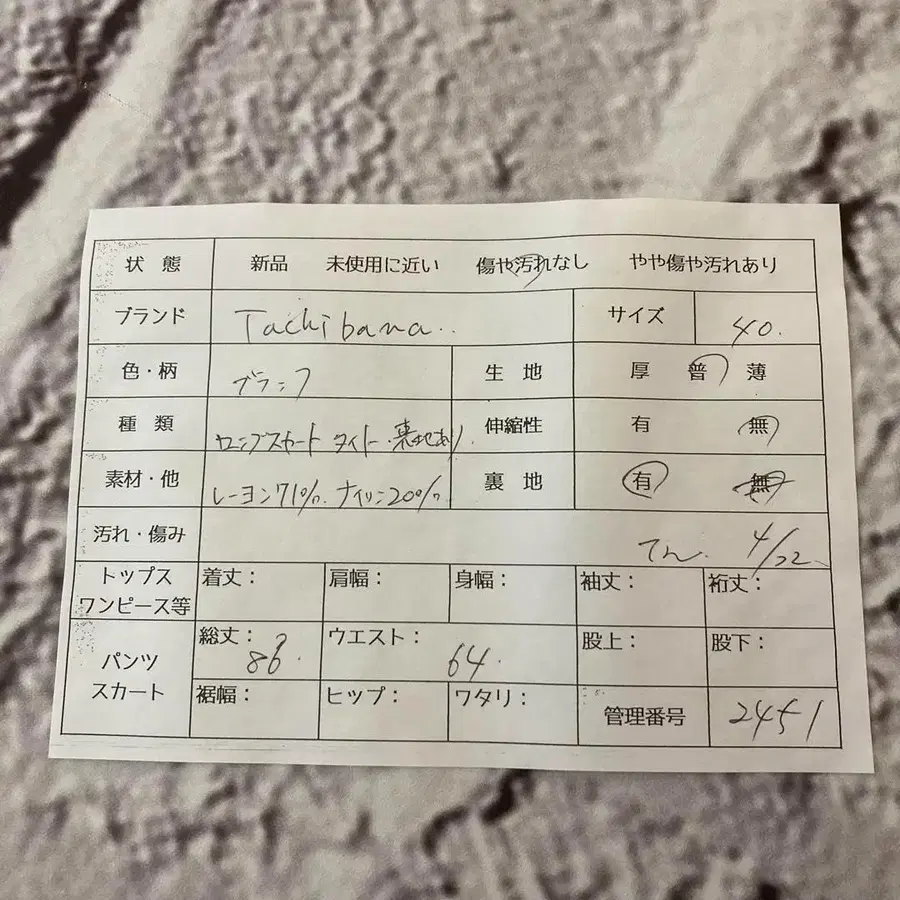 状態 新品 未使用に近い 傷や汚れなし やや傷や汚れあり
ブランド Tachibana.. サイズ 40.
色・柄 ブラック 生地 厚 普 薄
種類 ロングスカート タイト・裏地あり. 伸縮性 有 無
素材・他 レーヨン71% ナイロン20% 裏地 有 無
汚れ・傷み てん. 4/22
トップス
ワンピース等 着丈: 肩幅: 身幅: 袖丈: 裄丈:
パンツ
スカート 総丈: 86. ウエスト: 64. 股上: 股下:
裾幅: ヒップ: ワタリ: 管理番号 2451